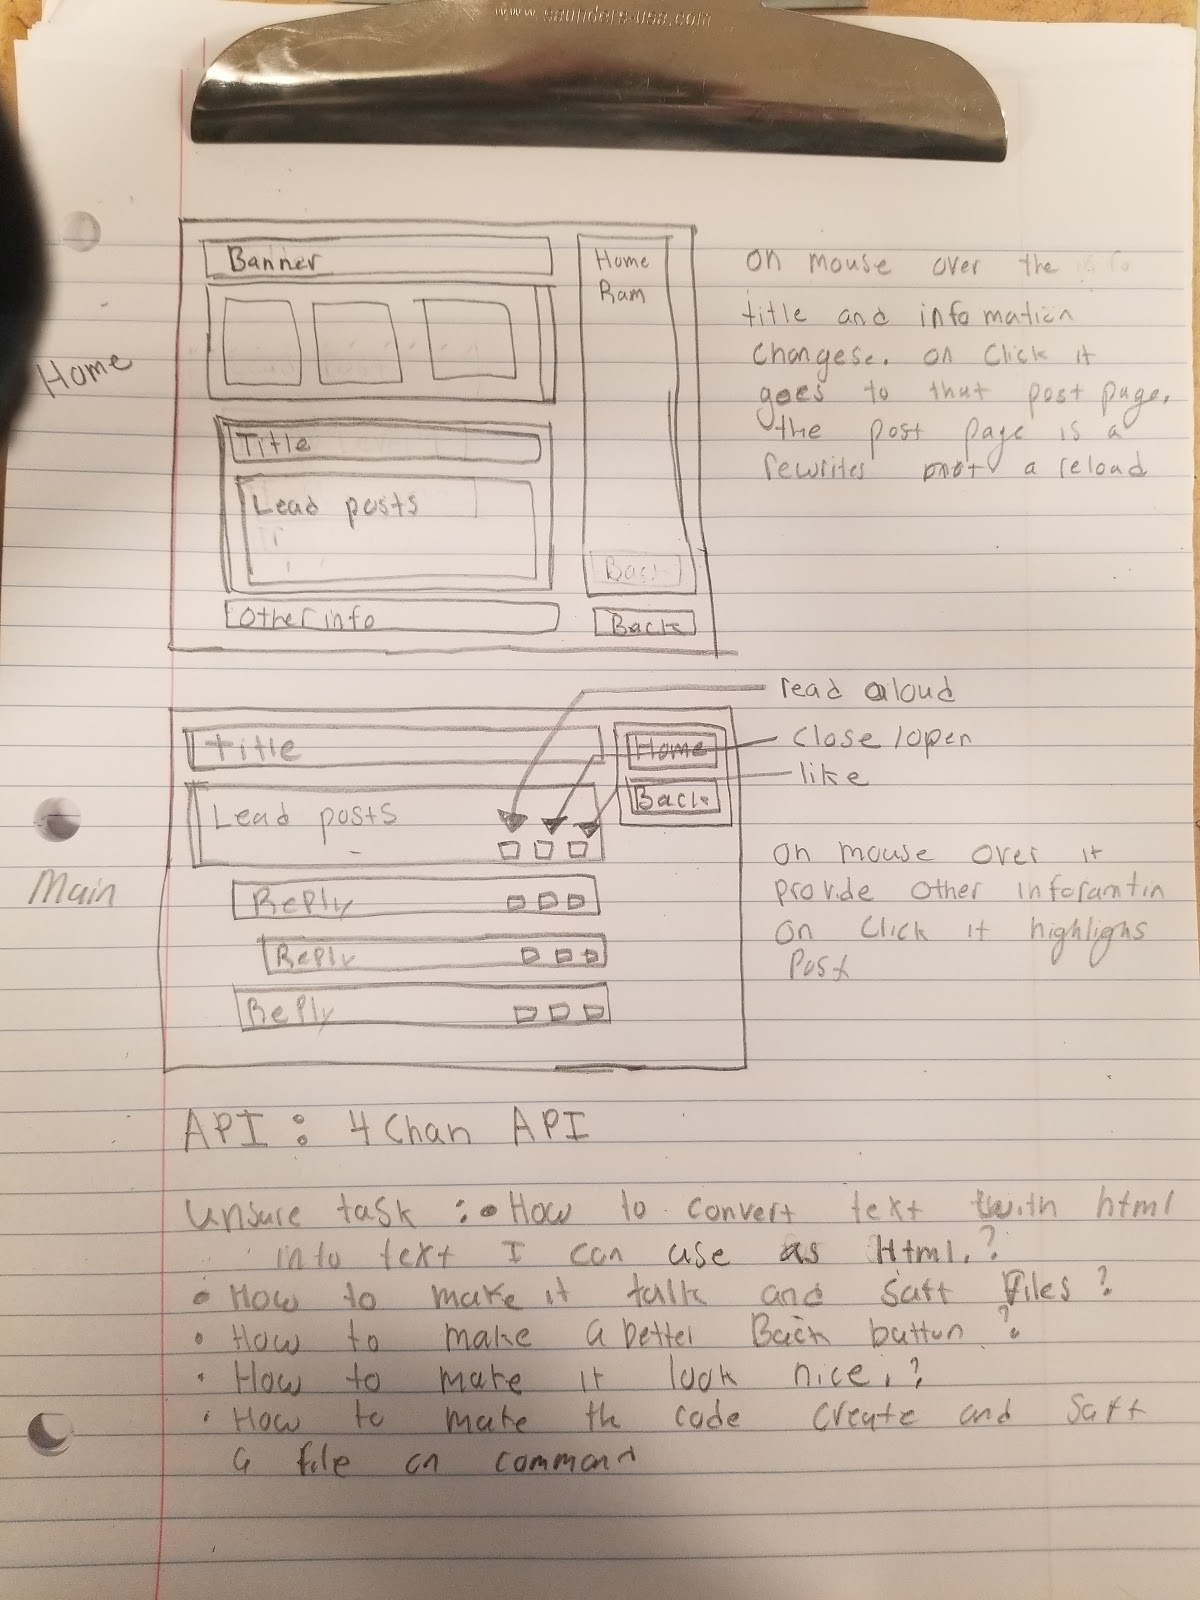 www.saunders-usa.com
Home
Banner
Home
Ram
Title
Lead posts
Back
Other info
Back
on mouse over the
title and infomation
changese. on click it
goes to that post page.
the post page is a
rewrites not a reload
Main
read aloud
close/open
like
title
Home
Lead posts
Back
Reply
Reply
Reply
on mouse over it
provide other inforamtin
on click it highlighs
Post
API : 4 Chan API
unsure task : • How to convert text with html
into text I can use as Html.?
• How to make it talk and Saff Files?
• How to make a better Back button?
• How to make it look nice.?
• How to make th code create and Saff
a file on command